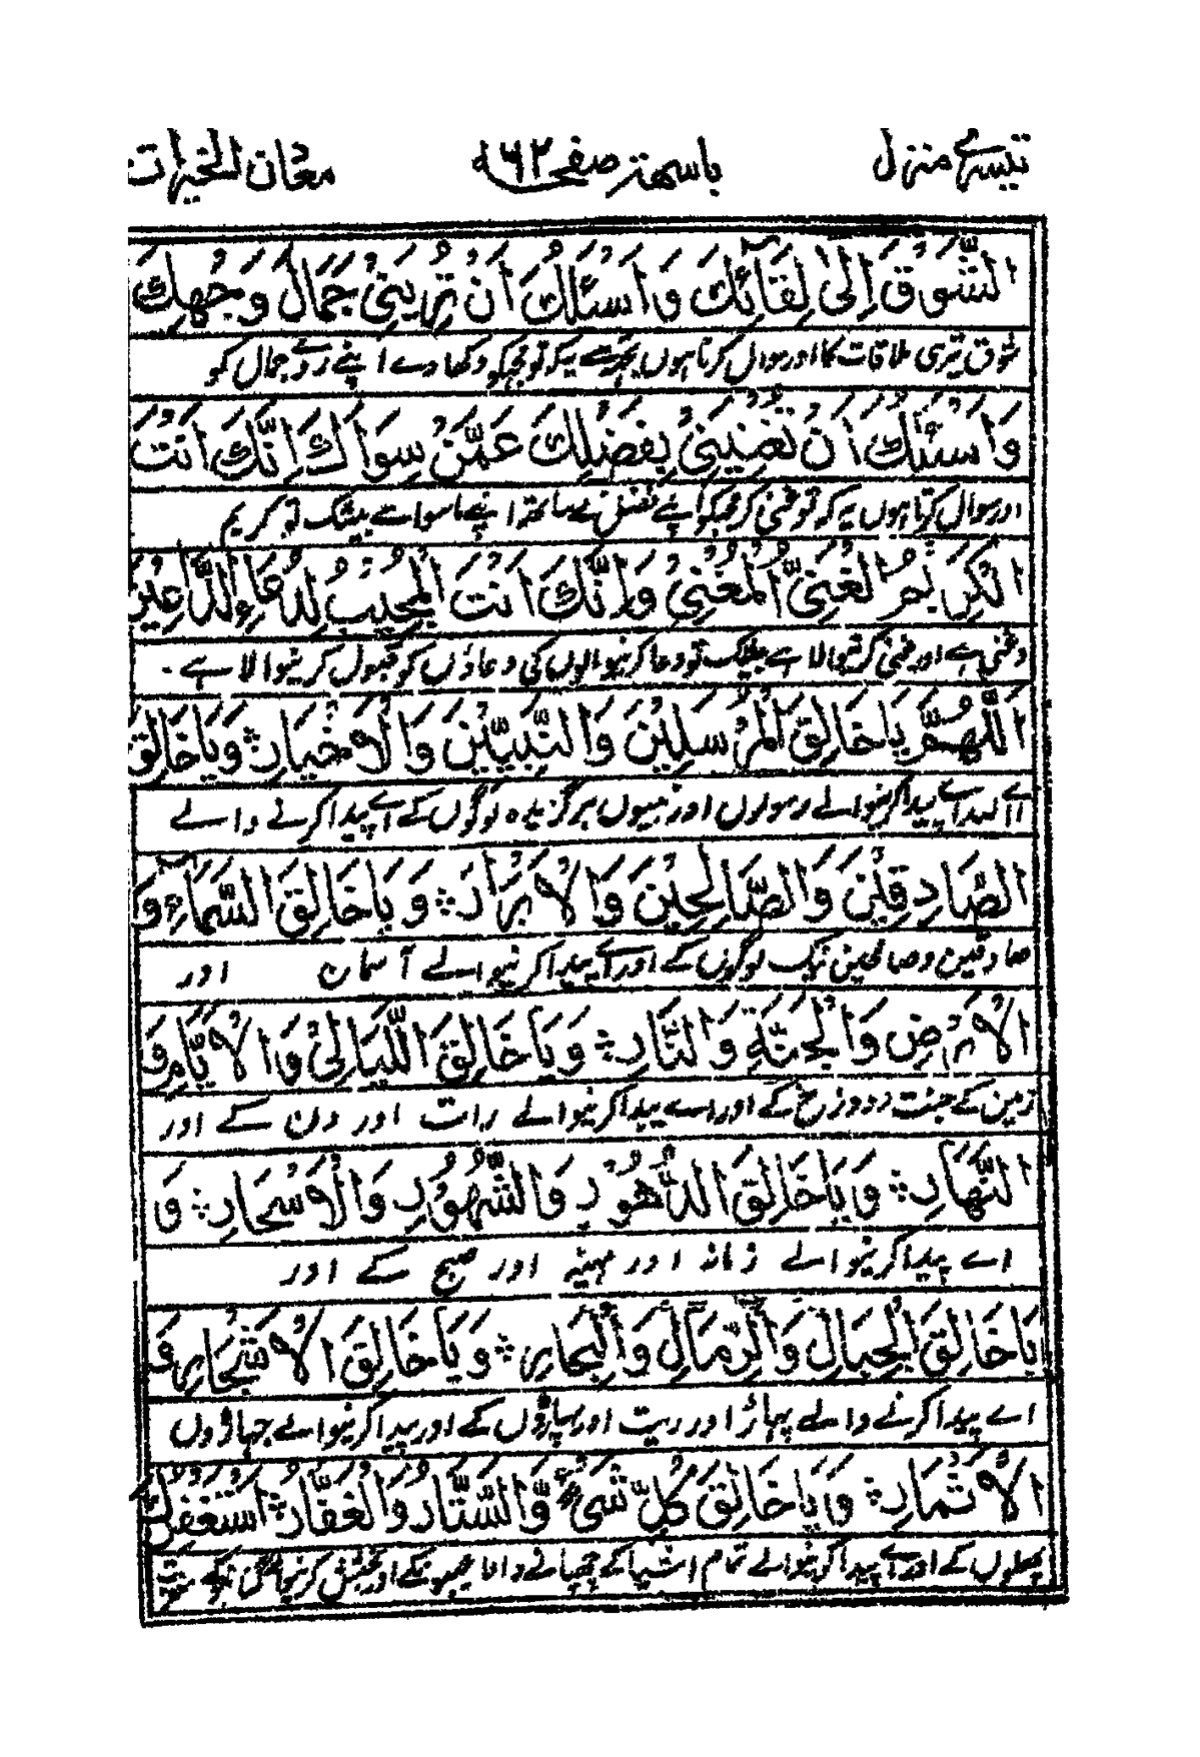 تیسرے منزل باسمہ صفحہ ٦٢ معدن الخیرات
الشَّوْقَ إِلىٰ لِقَائِكَ وَاَسْئَلُكَ اَنْ تُرِيَنِيْ جَمَالَ وَجْهِكَ
شوق تیری ملاقات کا اور سوال کرتا ہوں تجھ سے یہ کہ تو مجھکو دکھا دے اپنے روے جمال کو
وَاَسْئَلُكَ اَنْ تُغْنِيَنِيْ بِفَضْلِكَ عَمَّنْ سِوَاكَ اِنَّكَ اَنْتَ
اور سوال کرتا ہوں یہ کہ تو غنی کر مجھکو اپنے فضل کے ساتھ اپنے ماسوا سے بیشک تو کریم
الْكَرِيْمُ الْغَنِيُّ الْمُغْنِيْ وَاِنَّكَ اَنْتَ الْمُجِيْبُ لِدُعَاءِ الدَّاعِيْنَ
و غنی ہے اور غنی کرنیوالا ہے بیشک تو دعا کرنیوالوں کی دعاؤں کو قبول کرنیوالا ہے ۔
اَللّٰهُمَّ يَاخَالِقَ الْمُرْسَلِيْنَ وَالنَّبِيِّيْنَ وَالْاَخْيَارِ؞ وَيَاخَالِقَ
اے اللہ اے پیدا کرنیوالے رسولوں اور نبیوں برگزیدہ لوگوں کے اے پیدا کرنے والے
الصَّادِقِيْنَ وَالصَّالِحِيْنَ وَالْاَبْرَارِ؞ وَيَاخَالِقَ السَّمَاءِ وَ
صادقین و صالحین نیک لوگوں کے اور اے پیدا کرنیوالے آسمان اور
الْاَرْضِ وَالْجَنَّةِ وَالنَّارِ؞ وَيَاخَالِقَ اللَّيَالِيْ وَالْاَيَّامِ وَ
زمین کے جنت و دوزخ کے اور اے پیدا کرنیوالے رات اور دن کے اور
النَّهَارِ؞ وَيَاخَالِقَ الدُّهُوْرِ وَالشُّهُوْرِ وَالْاَسْحَارِ؞ وَ
اے پیدا کرنیوالے زمانہ اور مہینہ اور صبح کے اور
يَاخَالِقَ الْجِبَالِ وَالرِّمَالِ وَالْبِحَارِ؞ وَيَاخَالِقَ الْاَشْجَارِ وَ
اے پیدا کرنے والے پہاڑ اور ریت اور کے اور پیدا کرنیوالے جہاڑوں
الْاَثْمَارِ؞ وَيَاخَالِقَ كُلِّ شَيْءٍ وَّالسَّتَّارُ وَالْغَفَّارُ؞ اَسْتَغْفِرُكَ
پھلوں کے اور اے پیدا کرنیوالے تمام اشیا کے چھپانے والا اور بخشش